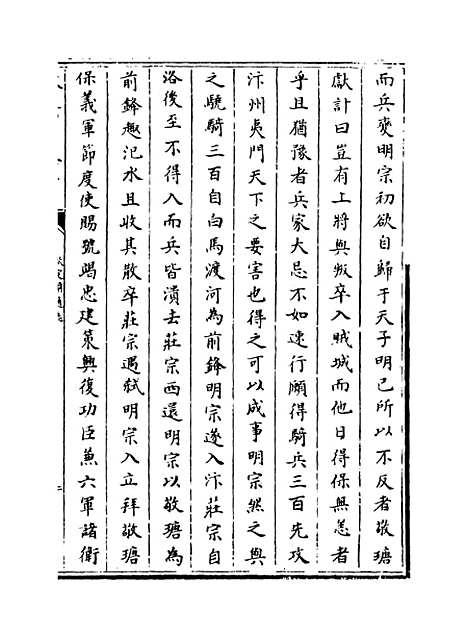 而兵變明宗初欲自歸于天子明己所以不反者敬瑭
獻計曰豈有上將與叛卒入賊城而他日得保無恙者
乎且猶豫者兵家大忌不如速行願得騎兵三百先攻
汴州夷門天下之要害也得之可以成事明宗然之與
之驍騎三百自白馬渡河為前鋒明宗遂入汴莊宗自
洛後至不得入而兵皆潰去莊宗西還明宗以敬瑭為
前鋒趣汜水且收其散卒莊宗遇弑明宗入立拜敬瑭
保義軍節度使賜號竭忠建策興復功臣兼六軍諸衛